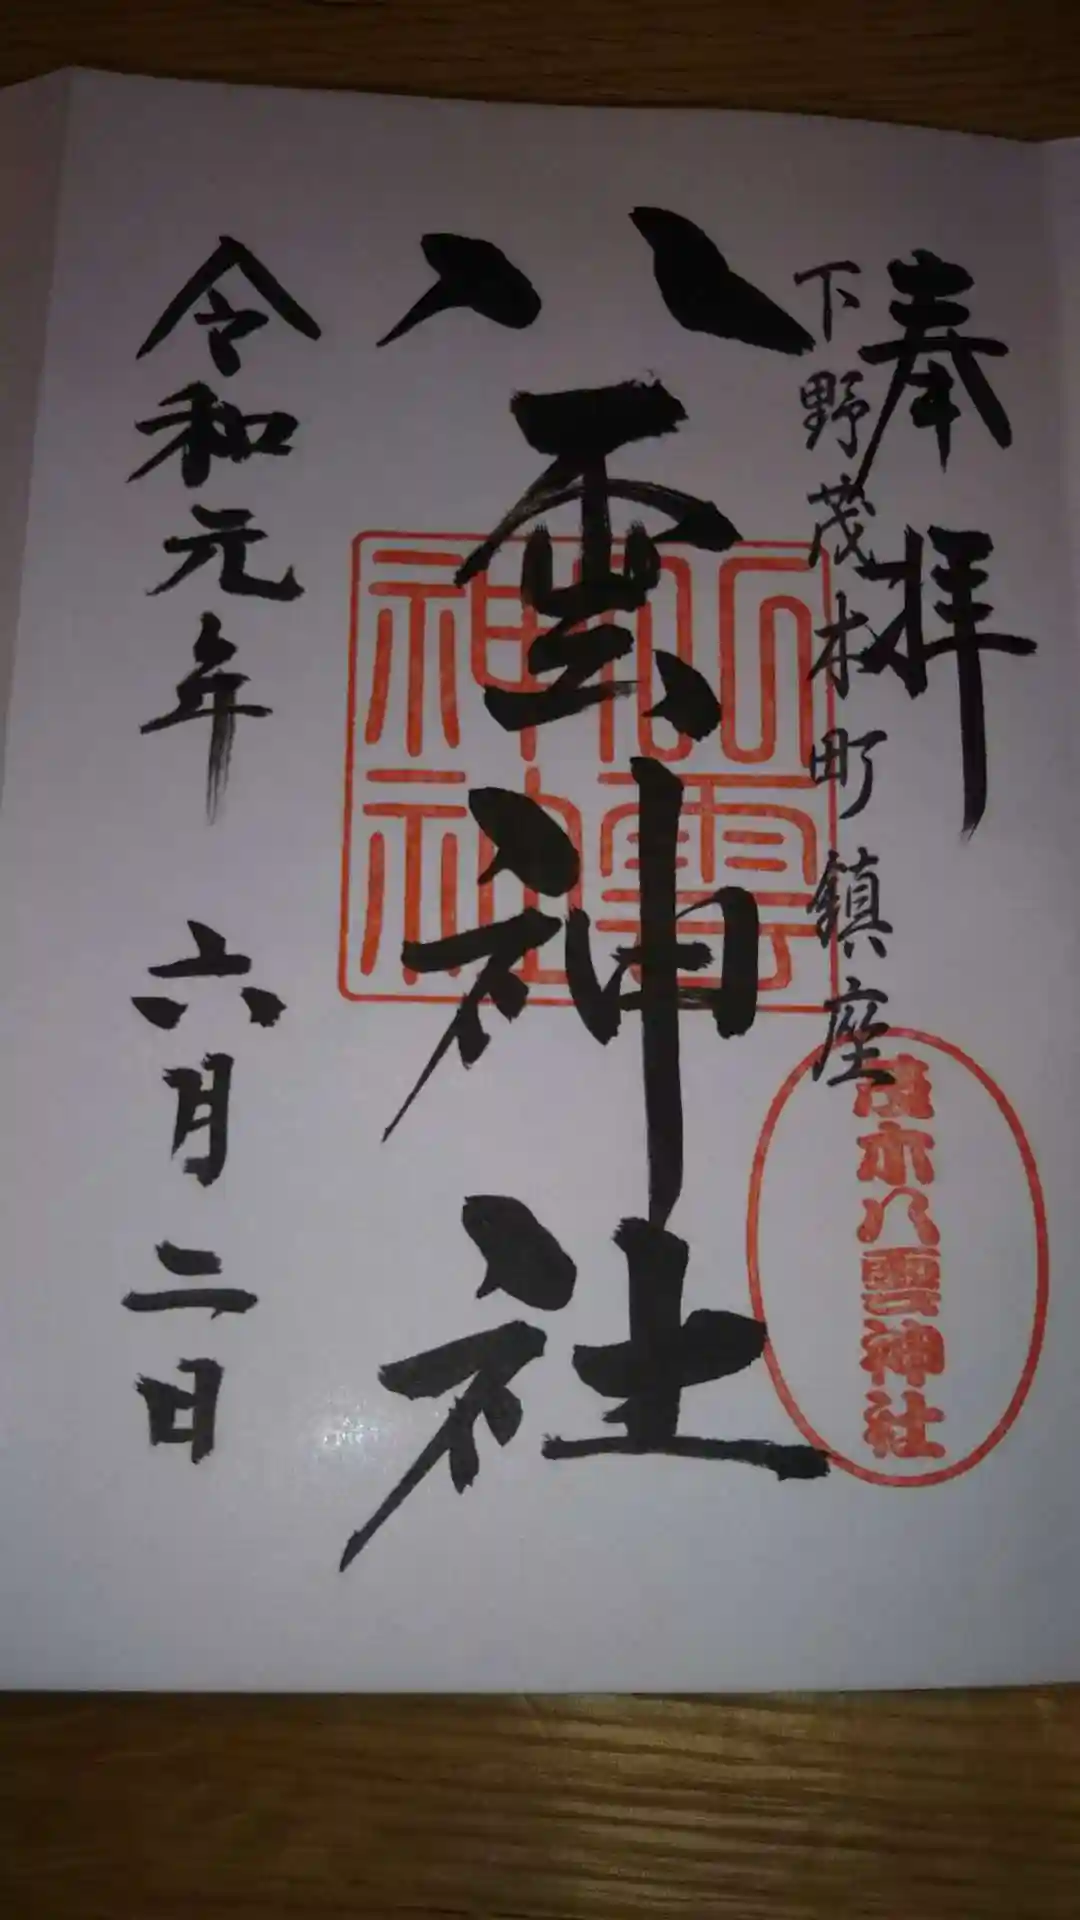 奉拝
下野茂木町鎮座
茂木八雲神社
八雲神社
八雲
神社
令和元年 六月二日